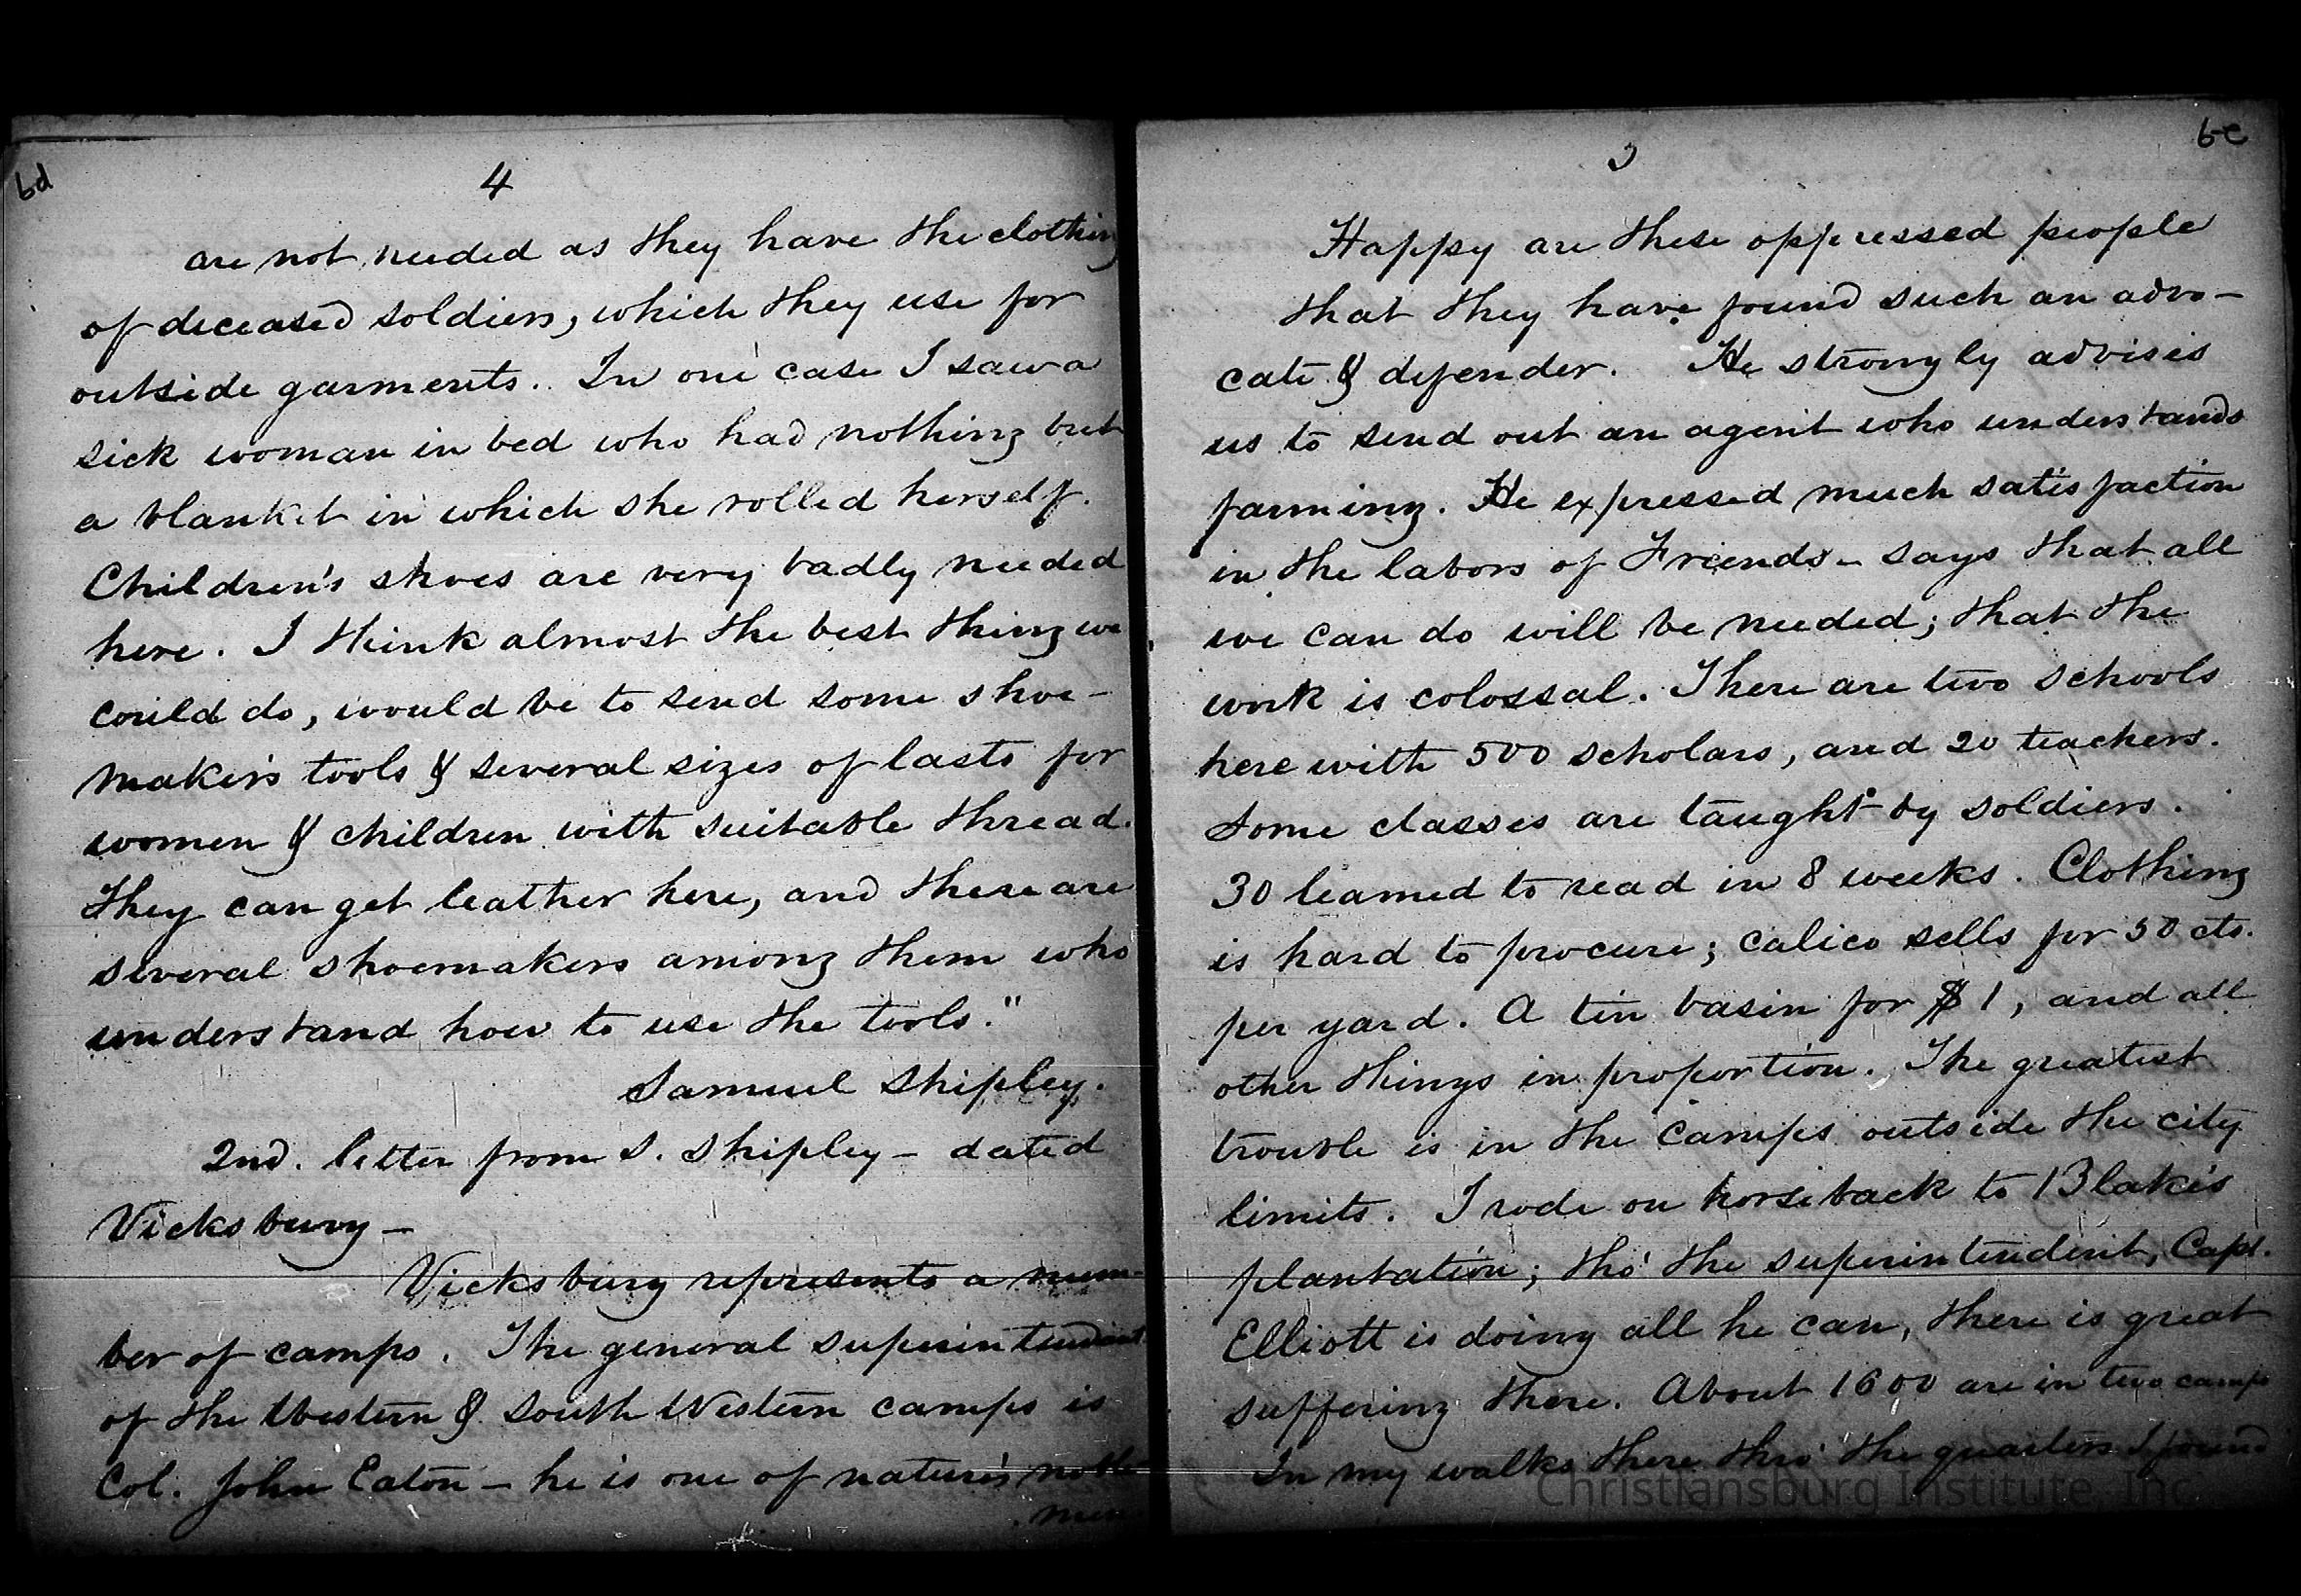 6d
4
are not needed as they have the clothing
of deceased soldiers, which they use for
outside garments. In one case I saw a
sick woman in bed who had nothing but
a blanket in which she rolled herself.
Children's shoes are very badly needed
here. I think almost the best thing we
could do, would be to send some shoe-
maker's tools & several sizes of lasts for
women & children with suitable thread.
They can get leather here, and there are
several shoemakers among them who
understand how to use the tools."
Samuel Shipley.
2nd. letter from S. Shipley - dated
Vicksburg -
Vicksburg represents a num-
ber of camps. The general superintendent
of the Western & South Western camps is
Col. John Eaton - he is one of nature's noble
men.
6e
Happy are these oppressed people
that they have found such an advo-
cate & defender. He strongly advises
us to send out an agent who understands
farming. He expressed much satisfaction
in the labors of Friends - says that all
we can do will be needed; that the
work is colossal. There are two schools
here with 500 scholars, and 20 teachers.
Some classes are taught by soldiers.
30 learned to read in 8 weeks. Clothing
is hard to procure; calico sells for 50 cts.
per yard. A tin basin for $1, and all
other things in proportion. The greatest
trouble is in the camps outside the city
limits. I rode on horseback to Blake's
plantation; tho' the superintendent, Capt.
Elliott is doing all he can, there is great
suffering there. About 1600 are in two camps
In my walks there thro' the quarters I found
Christiansburg Institute, Inc.